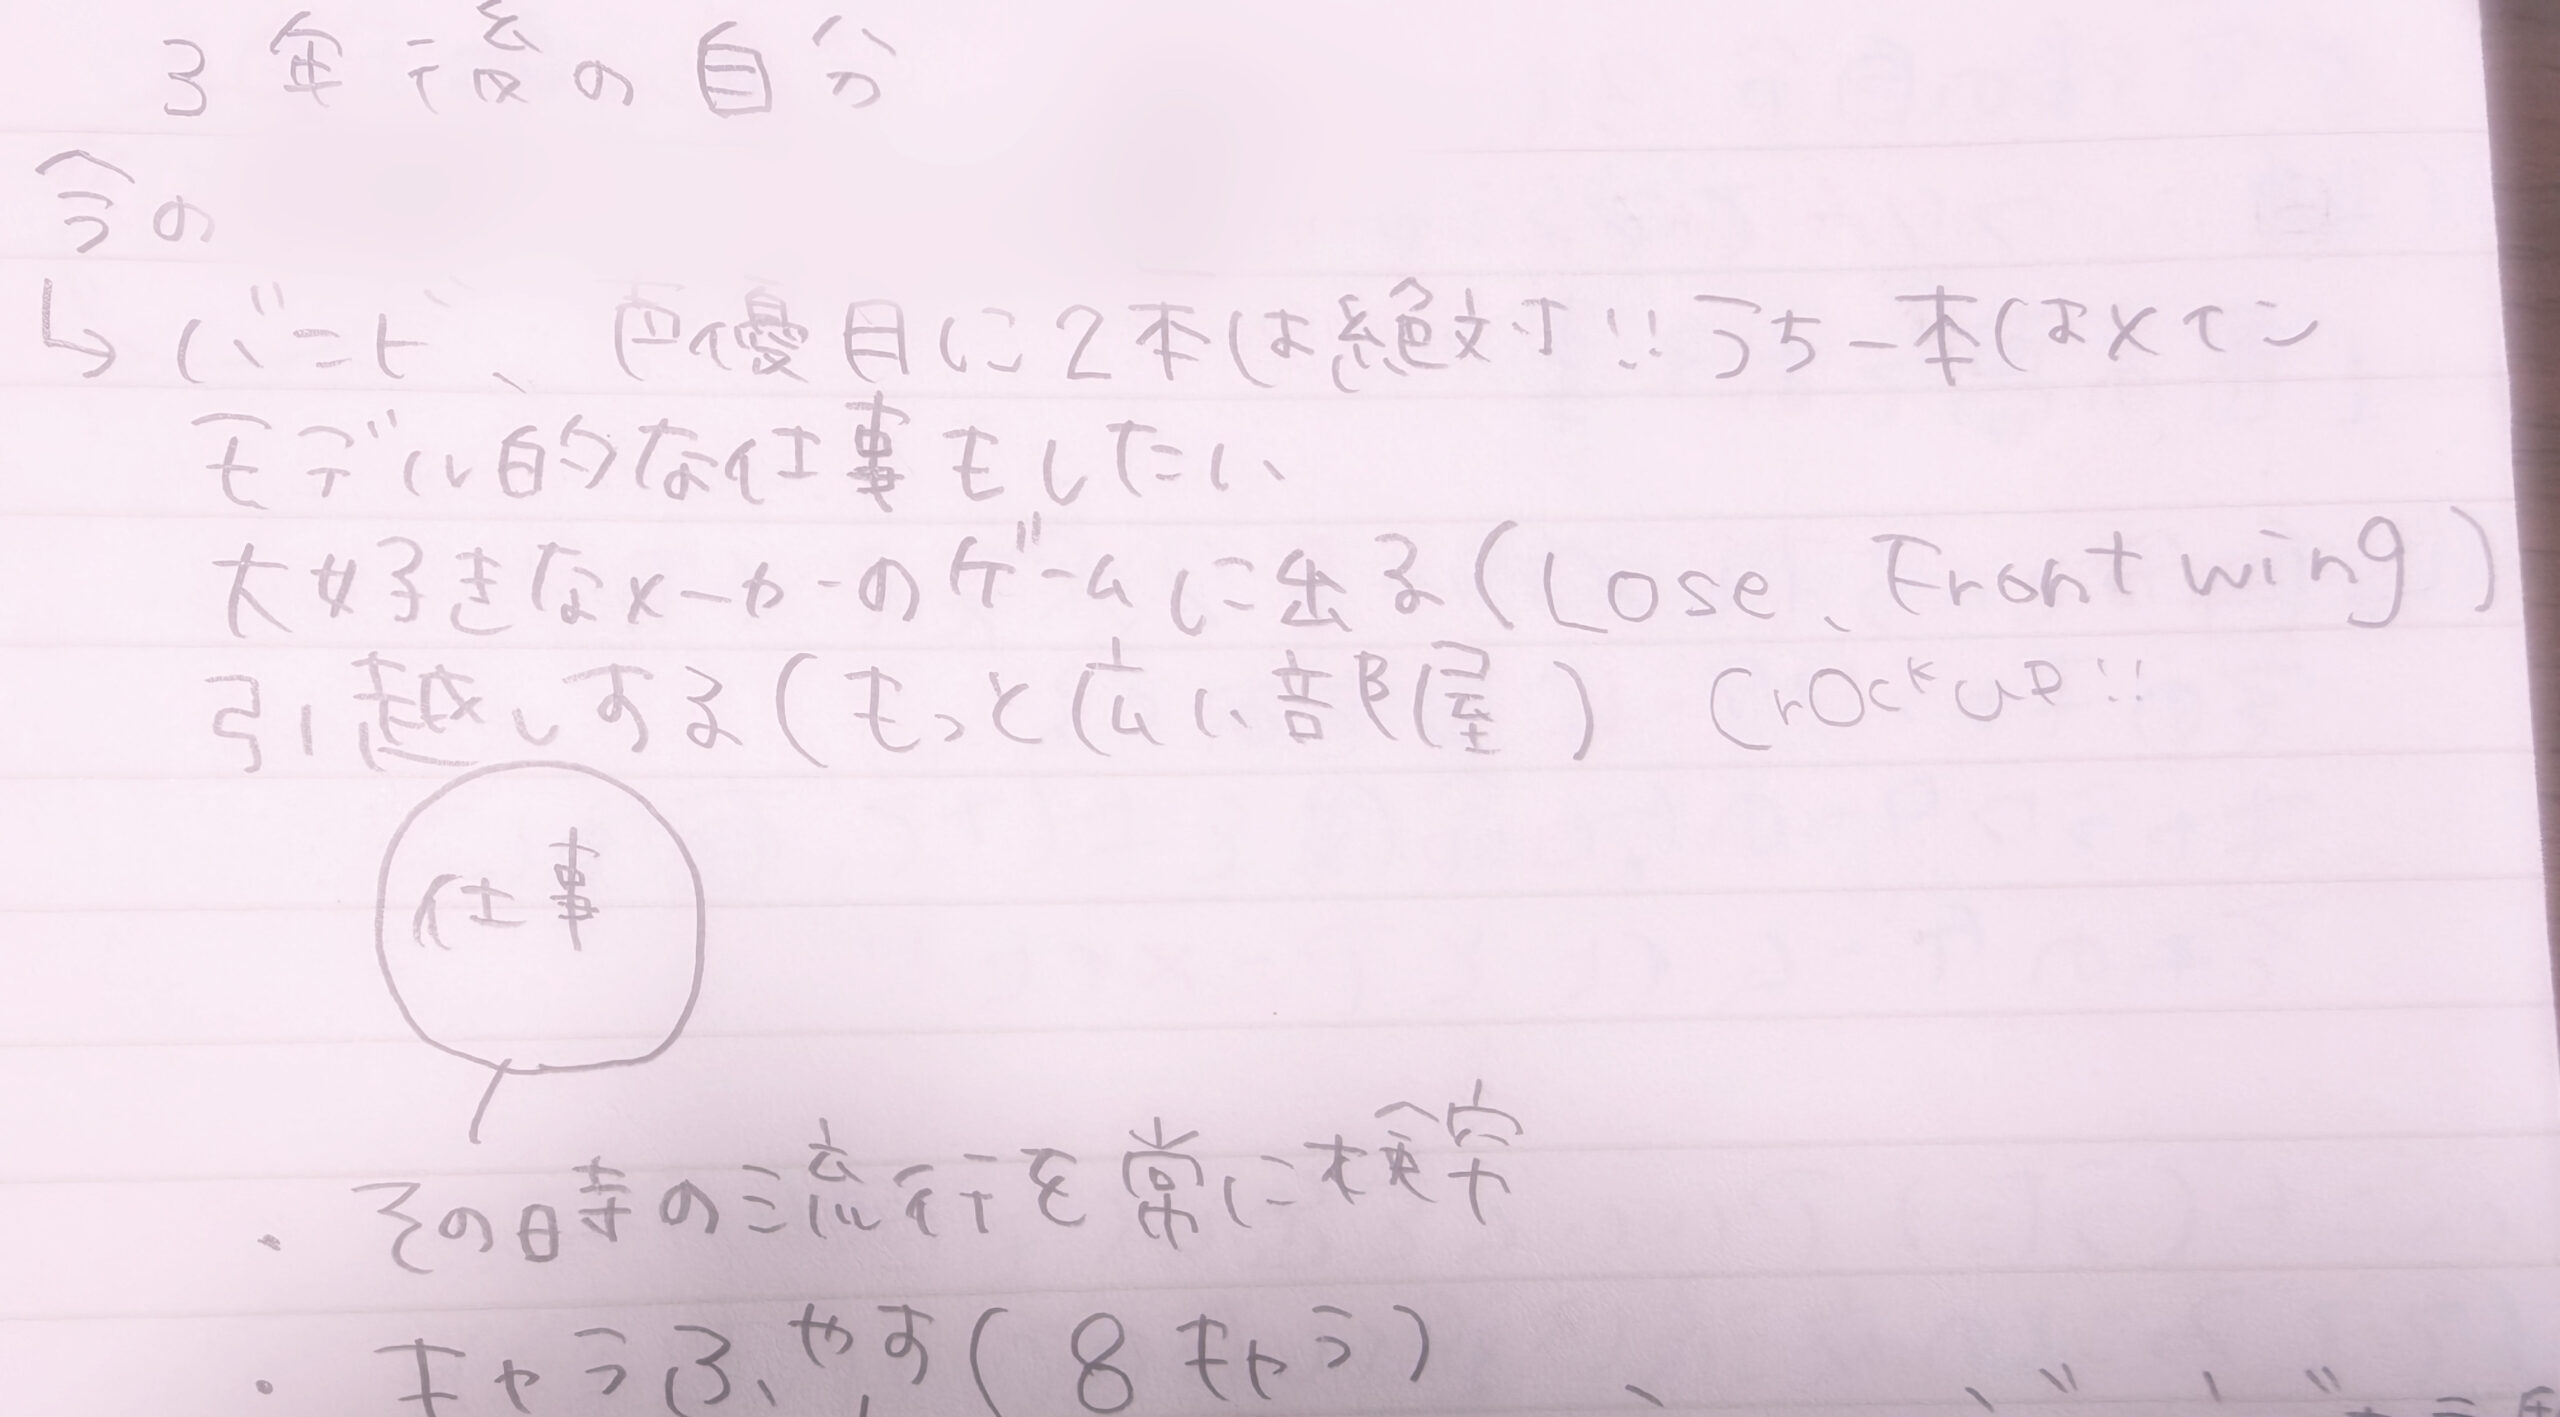 3年後の自分
今の
↳バンド、声優目に2本は絶対!!うち一本はメイン
モデル的な仕事もしたい
大好きなメーカーのゲームに出る(Lose、Frontwing)
引越しする(もっと広い部屋) CrOckUP!!
仕事
・その時の流行を常に検索
・キャラふやす(8キャラ)